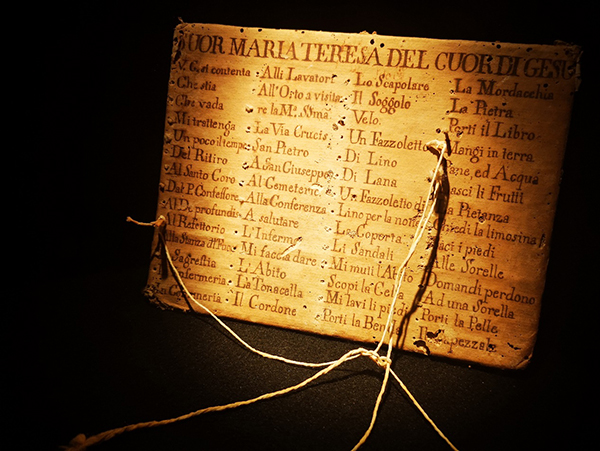 SUOR MARIA TERESA DEL CUOR DI GESU
si contenta
Che stia
Che vada
Mi trattenga
Un poco il tempo
Del Ritiro
Al Santo Coro
Dal P. Confessore
Al De profundis
Al Refettorio
Alla Stanza
Sagrestia
Infermeria
Alli Lavatori
All'Orto a visita
re la Mª. SSma
La Via Crucis
San Pietro
A San Giuseppe
Al Cemeterio
Alla Conferenza
A salutare
L'Inferma
Mi faccia dare
L'Abito
La Tonacella
Il Cordone
Lo Scapolare
Il Soggolo
Velo.
Un Fazzoletto
Di Lino
Di Lana
Un Fazzoletto di
Lino per la notte
La Coperta
Li Sandali
Mi muti l'Abito
Scopi la Cella
Mi lavi li piedi
Porti la Benda
La Mordacchia
La Pietra
Porti il Libro
Mangi in terra
Pane, ed Acqua
Lasci li Frutti
La Pietanza
Chiedi la limosina
Baci i piedi
Alle Sorelle
Domandi perdono
Ad una Sorella
Porti la Pelle
Il Capezzale